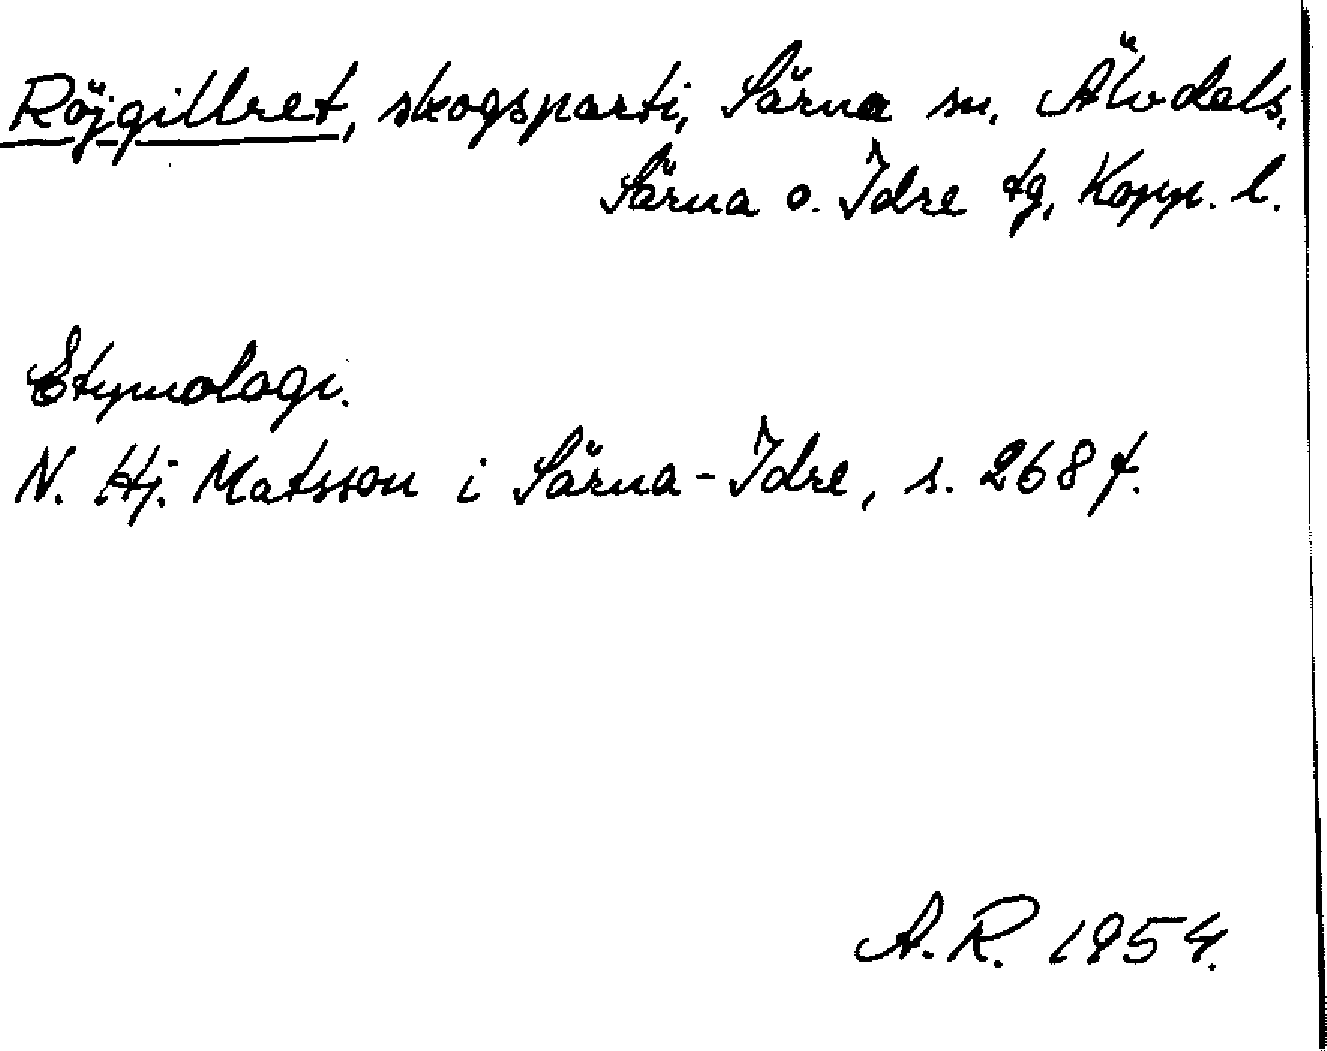 Röjgillret, skogsparti, Särna sn. Älvdals,
Särna o. Idre tg, Kopp. l.
Etymologi.
N. Hj. Matsson i Särna-Idre, s. 268 f.
A.R. 1954.